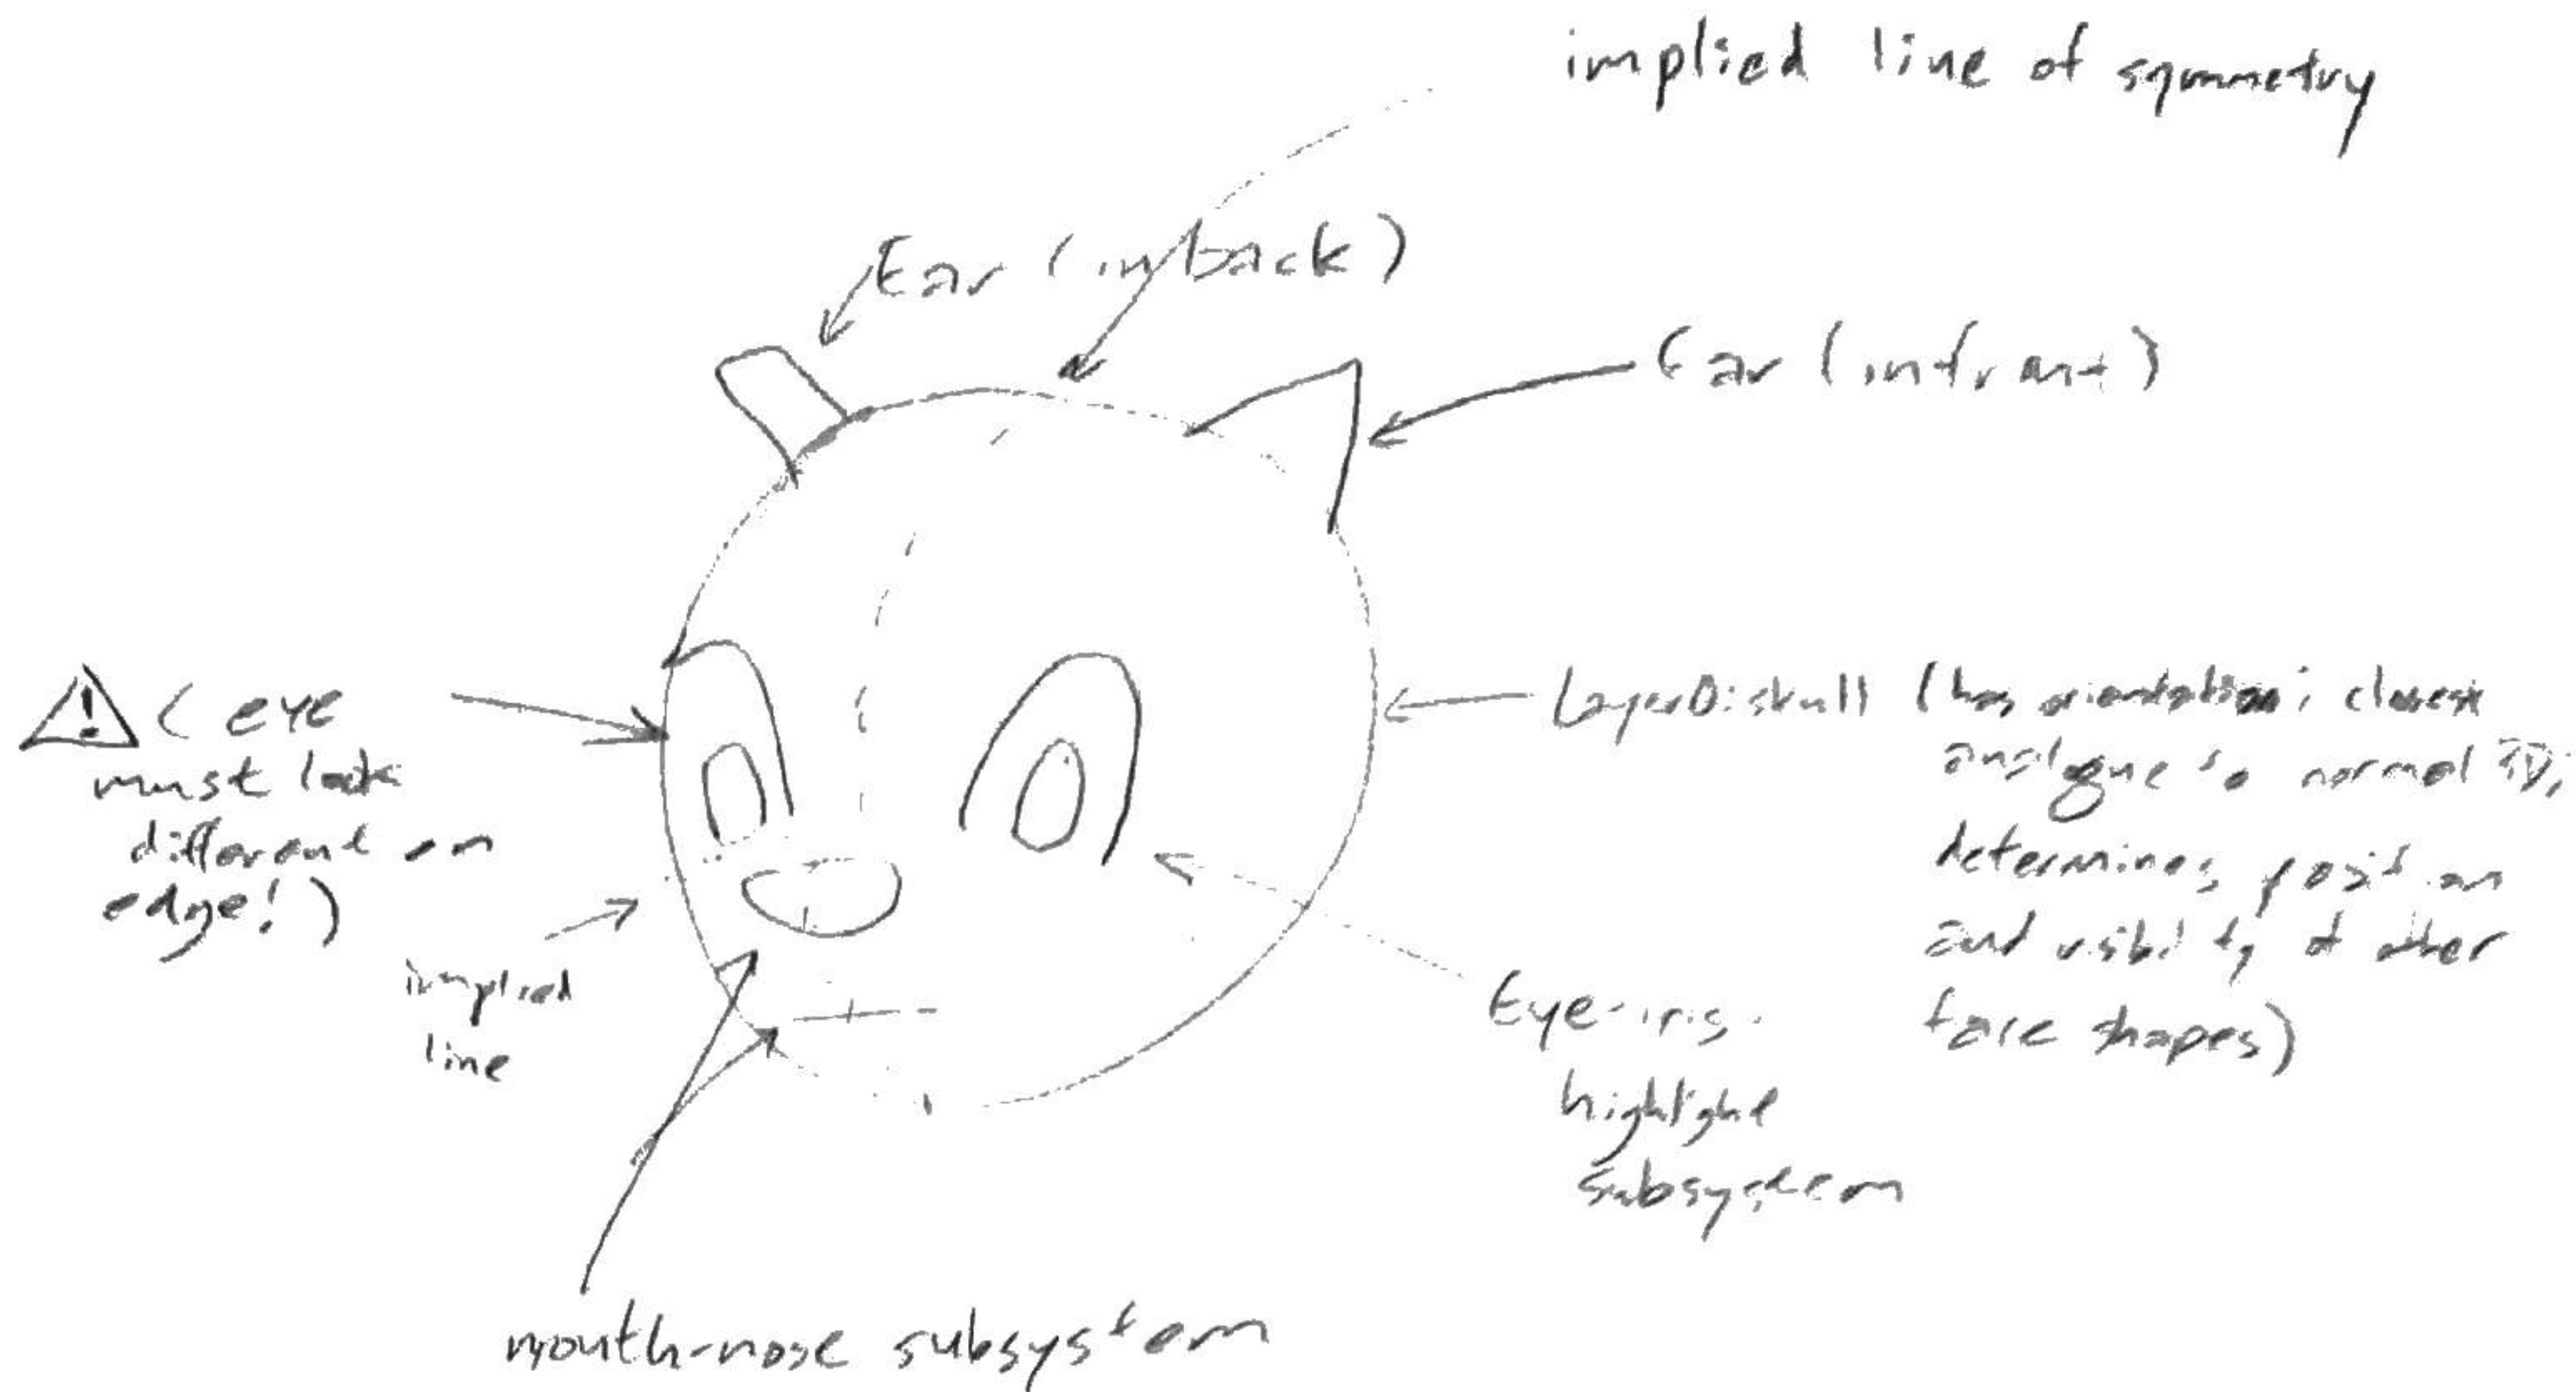 implied line of symmetry
Ear (in back)
Ear (in front)
(eye
must look
different on
edge!)
Layer 0: skull (has orientation; closest
analogue to normal 3D;
determines position
and visibility of other
face shapes)
implied
line
Eye-iris-
highlight
subsystem
mouth-nose subsystem